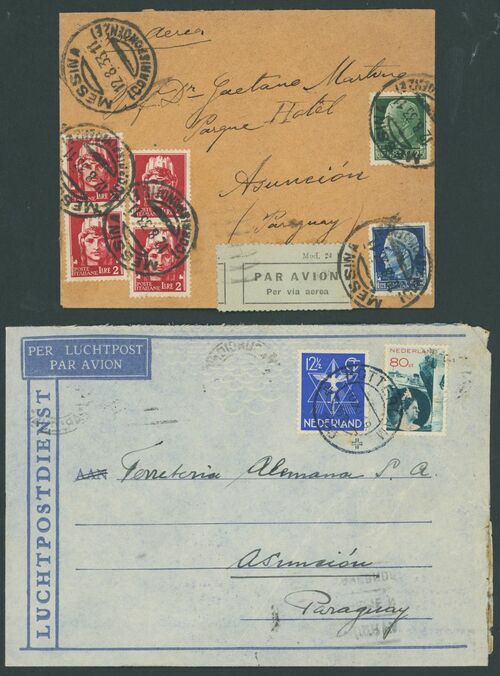 MESSINA
12.8.33.11
(CORRISPONDENZE)
aerea
Dr. Gaetano Martino
Parque Hotel
Asunción
(Paraguay)
POSTE ITALIANE LIRE 2
POSTE ITALIANE LIRE 2
POSTE ITALIANE LIRE 2
POSTE ITALIANE LIRE 2
MESSINA
MESSINA
Mod. 24
PAR AVION
Per via aerea
PER LUCHTPOST
PAR AVION
LUCHTPOSTDIENST
12½ ct
NEDERLAND
NEDERLAND
80 ct
AAN Ferreteria Alemana S. A.
Asunción
Paraguay